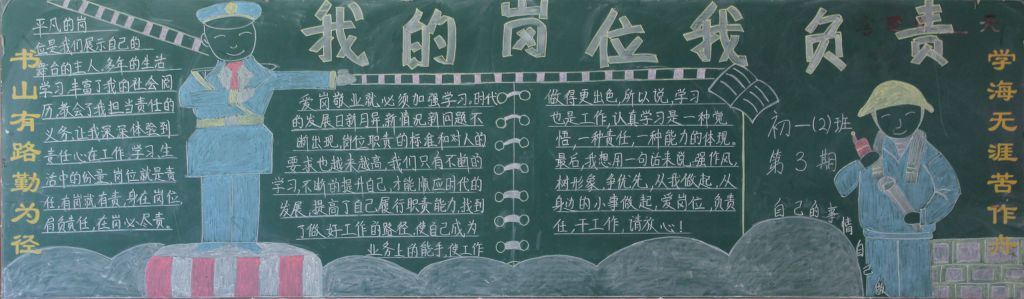 我的岗位我负责
书山有路勤为径
平凡的岗
位是我们展示自己的
舞台的主人,多年的生活
学习丰富了我的社会阅
历,教会了我担当责任的
义务,让我深深体验到
责任心在工作,学习,生
活中的份量,岗位就是责
任,有岗就有责,身在岗位,
肩负责任,在岗必尽责。
爱岗敬业就必须加强学习,时代
的发展日新月异,新情况新问题不
断出现,岗位职责的标准和对人的
要求也越来越高,我们只有不断的
学习,不断的提升自己,才能顺应时代的
发展,提高了自己履行职责能力,找到
了做好工作的路径,使自己成为
业务上的能手,使工作
做得更出色,所以说,学习
也是工作,认真学习是一种觉
悟,一种责任,一种能力的体现。
最后,我想用一句话来说,强作风,
树形象,争优先,从我做起,从
身边的小事做起,爱岗位,负责
任,干工作,请放心!
初一(2)班
第3期
自己的事
情自己做
学海无涯苦作舟